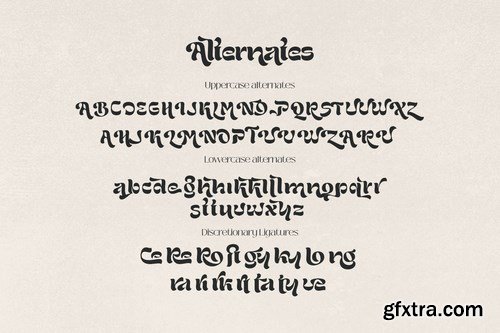 Alternates
Uppercase alternates
ABCDEGHIJKLMNDPQRSTUUWXZ
AHJKLMNOTUUWZARU
Lowercase alternates
abcdeghhikkllmnopqrr
sttuvwxyz
Discretionary Ligatures
Ce Re Ro fi gy ky lo ng
ra ri rk rt ta ty ve
gfxtra.com